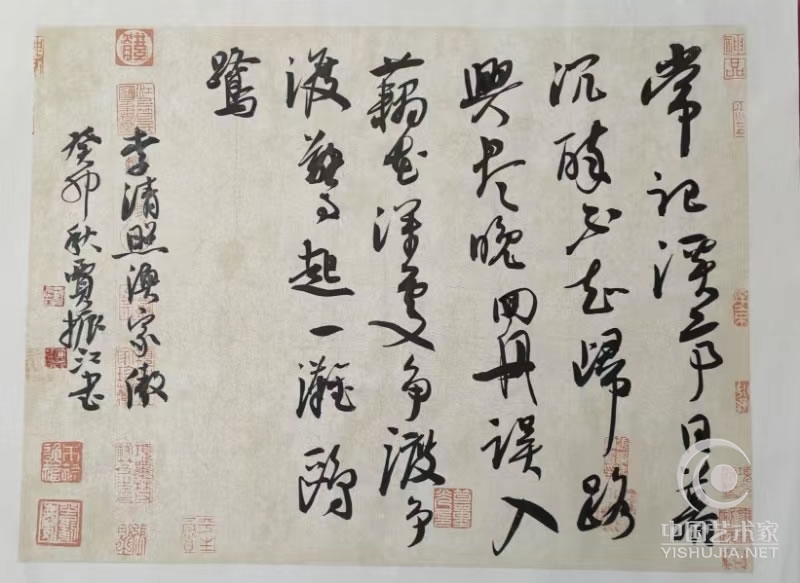 常记溪亭日暮
沉醉不知歸路
興尽晚回舟误入
藕花深處争渡争
渡驚起一灘鷗
鷺
李清照漁家傲
癸卯秋賈振江书
神品
中国艺术家
YISHUJIA.NET